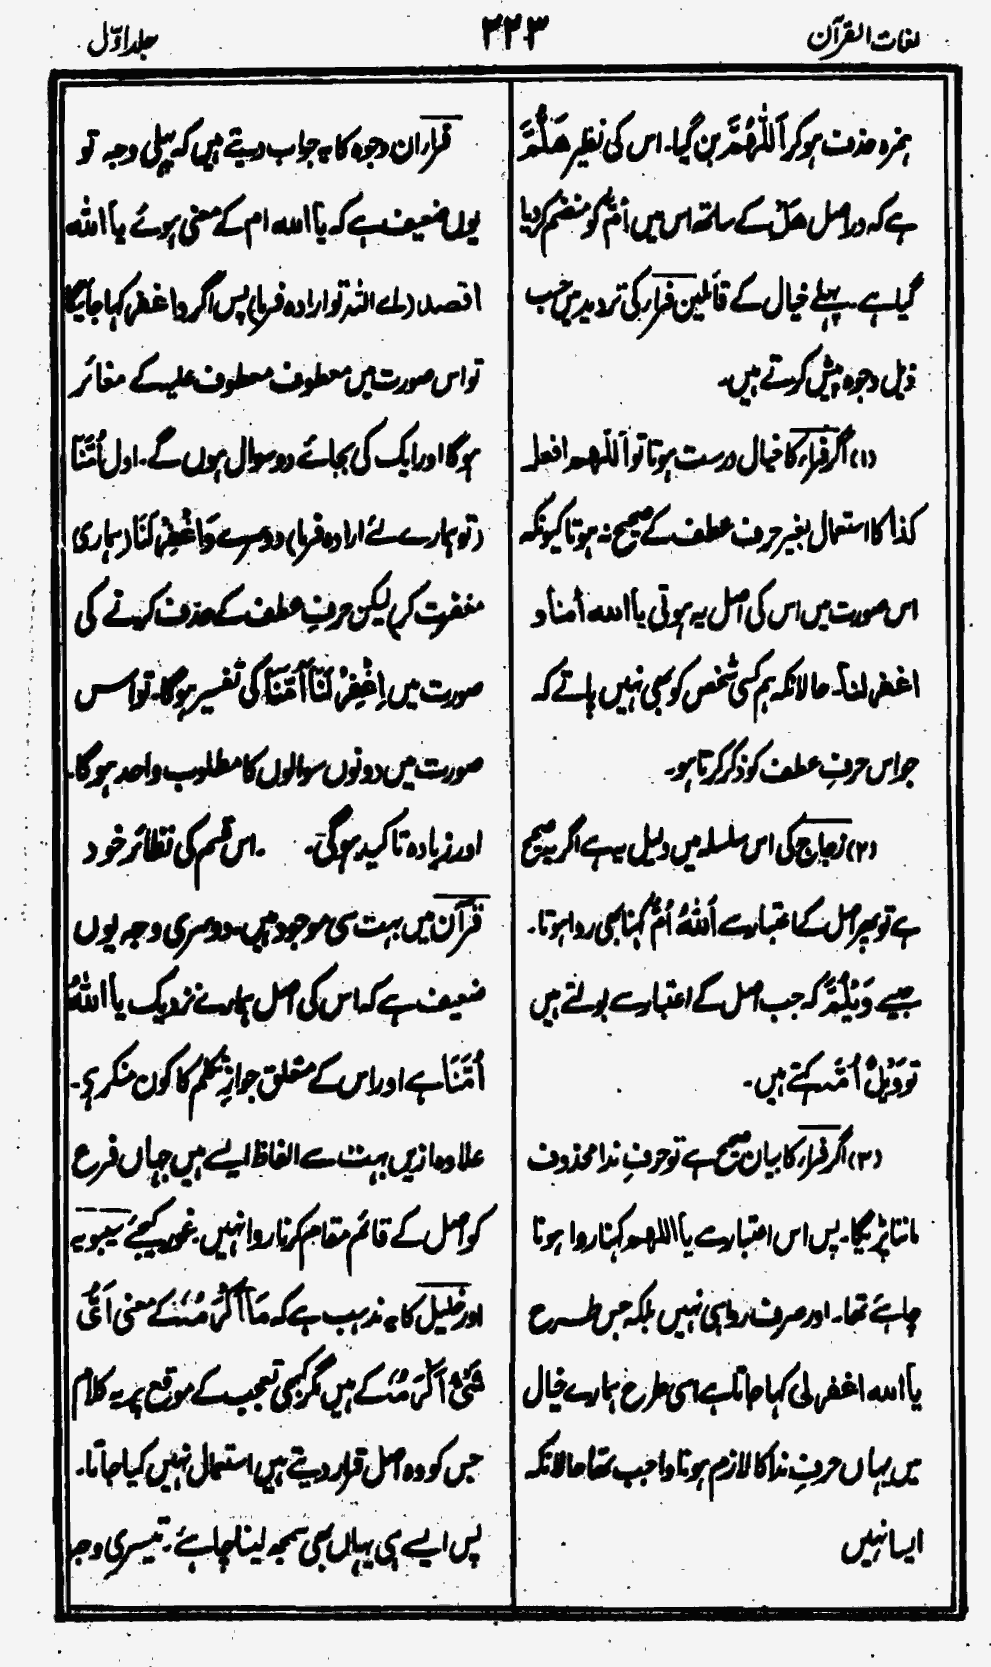 لغات القرآن
۲۲۳
جلد اوّل
ہمزہ حذف ہو کر اَللّٰھُمَّ بن گیا۔ اس کی نظیر ھَلُمَّ
ہے کہ دراصل ھَلْ کے ساتھ اس میں اُمَّ کو منضم کردیا
گیا ہے۔ پہلے خیال کے قائلین فرار کی تردید میں حسب
ذیل وجوہ پیش کرتے ہیں۔
(۱) اگر فراء کا خیال درست ہوتا تو اَللّٰھم افعل
کذا کا استعمال بغیر حرف عطف کے صحیح نہ ہوتا کیونکہ
اس صورت میں اس کی اصل یہ ہوتی یا اللہ اُمنا و
اغفر لنا۔ حالانکہ ہم کسی شخص کو بھی نہیں پاتے کہ
جو اس حرفِ عطف کو ذکر کرتا ہو۔
(۲) زجاج کی اس سلسلہ میں دلیل یہ ہے اگر یہ صحیح
ہے تو پھر اصل کے اعتبار سے اَللّٰہُ اُمَّ کہنا بھی روا ہوتا۔
جیسے وَیْلُمِّہٖ کہ جب اصل کے اعتبار سے بولتے ہیں
تو وَیْلُ اُمِّہٖ کہتے ہیں۔
(۳) اگر فراء کا بیان صحیح ہے تو حرفِ ندا محذوف
ماننا پڑیگا۔ پس اس اعتبار سے یا اللھم کہنا روا ہونا
چاہئے تھا۔ اور صرف روا ہی نہیں بلکہ جس طرح
یا اللہ اغفر لی کہا جاتا ہے اسی طرح ہمارے خیال
میں یہاں حرفِ ندا کا لازم ہونا واجب تھا حالانکہ
ایسا نہیں
فرار ان وجوہ کا یہ جواب دیتے ہیں کہ پہلی وجہ تو
یوں ضعیف ہے کہ یا اللہ ام کے معنی ہوئے یا اللّٰہ
اقصد (اے اللہ تو ارادہ فرما) پس اگر واغفر کہا جائیگا
تو اس صورت میں معطوف معطوف علیہ کے مغائر
ہوگا اور ایک کی بجائے دو سوال ہوں گے۔ اول اُمَّنَا
(تو ہمارے لئے ارادہ فرما) دوسرے وَاغْفِرْ لَنَا (ہماری
مغفرت کر) لیکن حرفِ عطف کے حذف کرنے کی
صورت میں اِغْفِرْ لَنَا اُمَّنَا کی تفسیر ہوگا۔ تو اس
صورت میں دونوں سوالوں کا مطلوب واحد ہوگا۔
اور زیادہ تاکید ہوگی۔ اس قسم کی نظائر خود
قرآن میں بہت سی موجود ہیں۔ دوسری وجہ یوں
ضعیف ہے کہ اس کی اصل ہمارے نزدیک یا اَللّٰہُ
اُمَّنَا ہے اور اس کے متعلق جوازِ تکلم کا کون منکر ہے۔
علاوہ ازیں بہت سے الفاظ ایسے ہیں جہاں فرع
کو اصل کے قائم مقام کرنا روا نہیں۔ غور کیجئے سیبویہ
اور خلیل کا یہ مذہب ہے کہ مَا اَکْرَمَہٗ کے معنی اَیُّ
شَیْءٍ اَکْرَمَہٗ کے ہیں مگر کبھی تعجب کے موقع پر یہ کلام
جس کو وہ اصل قرار دیتے ہیں استعمال نہیں کیا جاتا۔
پس ایسے ہی یہاں بھی سمجھ لینا چاہئے۔ تیسری وجہ